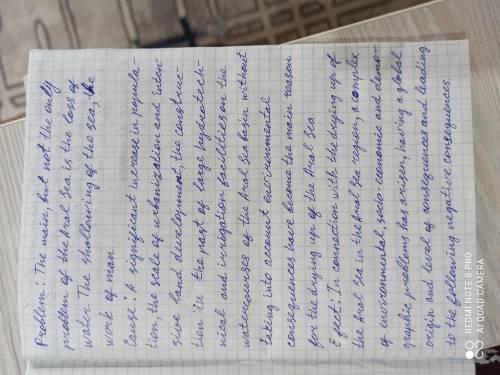 Problem: The main, but not the only
problem of the Aral Sea is the loss of
water. The shallowing of the sea, the
work of man.
Cause: A significant increase in popula-
tion, the scale of urbanization and inten
sive land development, the construc-
tion in the past of large hydrotech-
nical and irrigation facilities on the
watercourses of the Aral Sea basin without
taking into account environmental
consequences have become the main reason
for the drying up of the Aral Sea.
Effect: In connection with the drying up of
the Aral Sea in the Aral Sea region, a complex
of environmental, socio-economic and demo-
graphic problems has arisen, having a global
origin and level of consequences and leading
to the following negative consequences.
REDMI NOTE 8 PRO
AI QUAD CAMERA